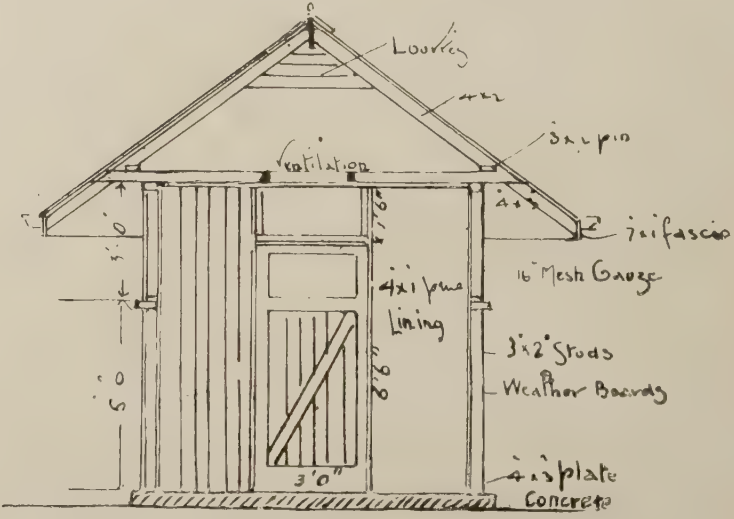 Louvres
4x2
3x2 pin
Ventilation
4x3
7x1 fascia
3'.0"
1'.6"
16" Mesh Gauze
4x1 pine
Lining
3"x2" Studs
6'6"
Weather Boards
5'0"
3'0"
4x3 plate
Concrete